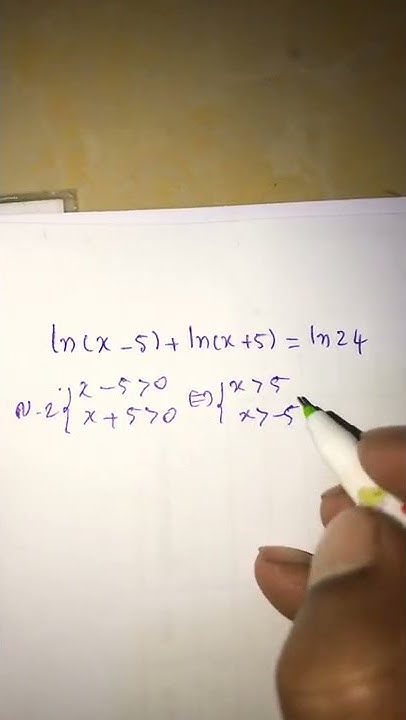 ln(x-5)+ln(x+5)=ln24
N-2{x-5>0 ⇔ {x>5
x+5>0 x>-5